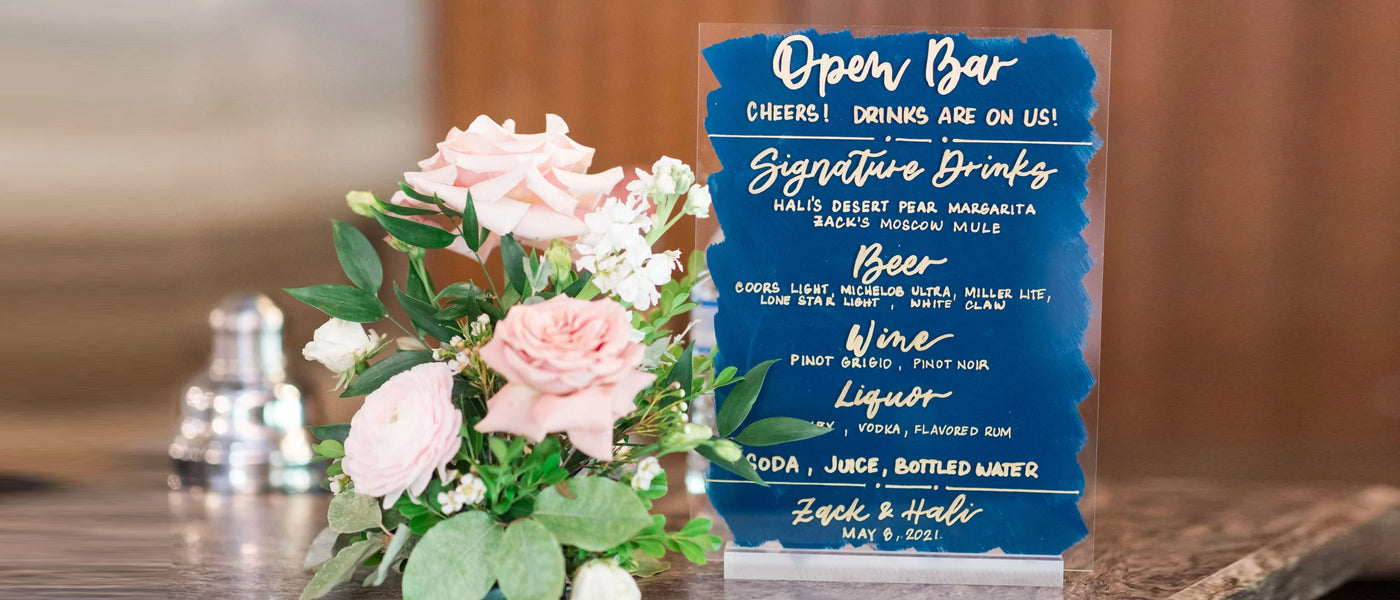 Open Bar
CHEERS! DRINKS ARE ON US!
Signature Drinks
HALI'S DESERT PEAR MARGARITA
ZACK'S MOSCOW MULE
Beer
COORS LIGHT, MICHELOB ULTRA, MILLER LITE,
LONE STAR LIGHT, WHITE CLAW
Wine
PINOT GRIGIO, PINOT NOIR
Liquor
, VODKA, FLAVORED RUM
SODA, JUICE, BOTTLED WATER
Zack & Hali
MAY 8, 2021